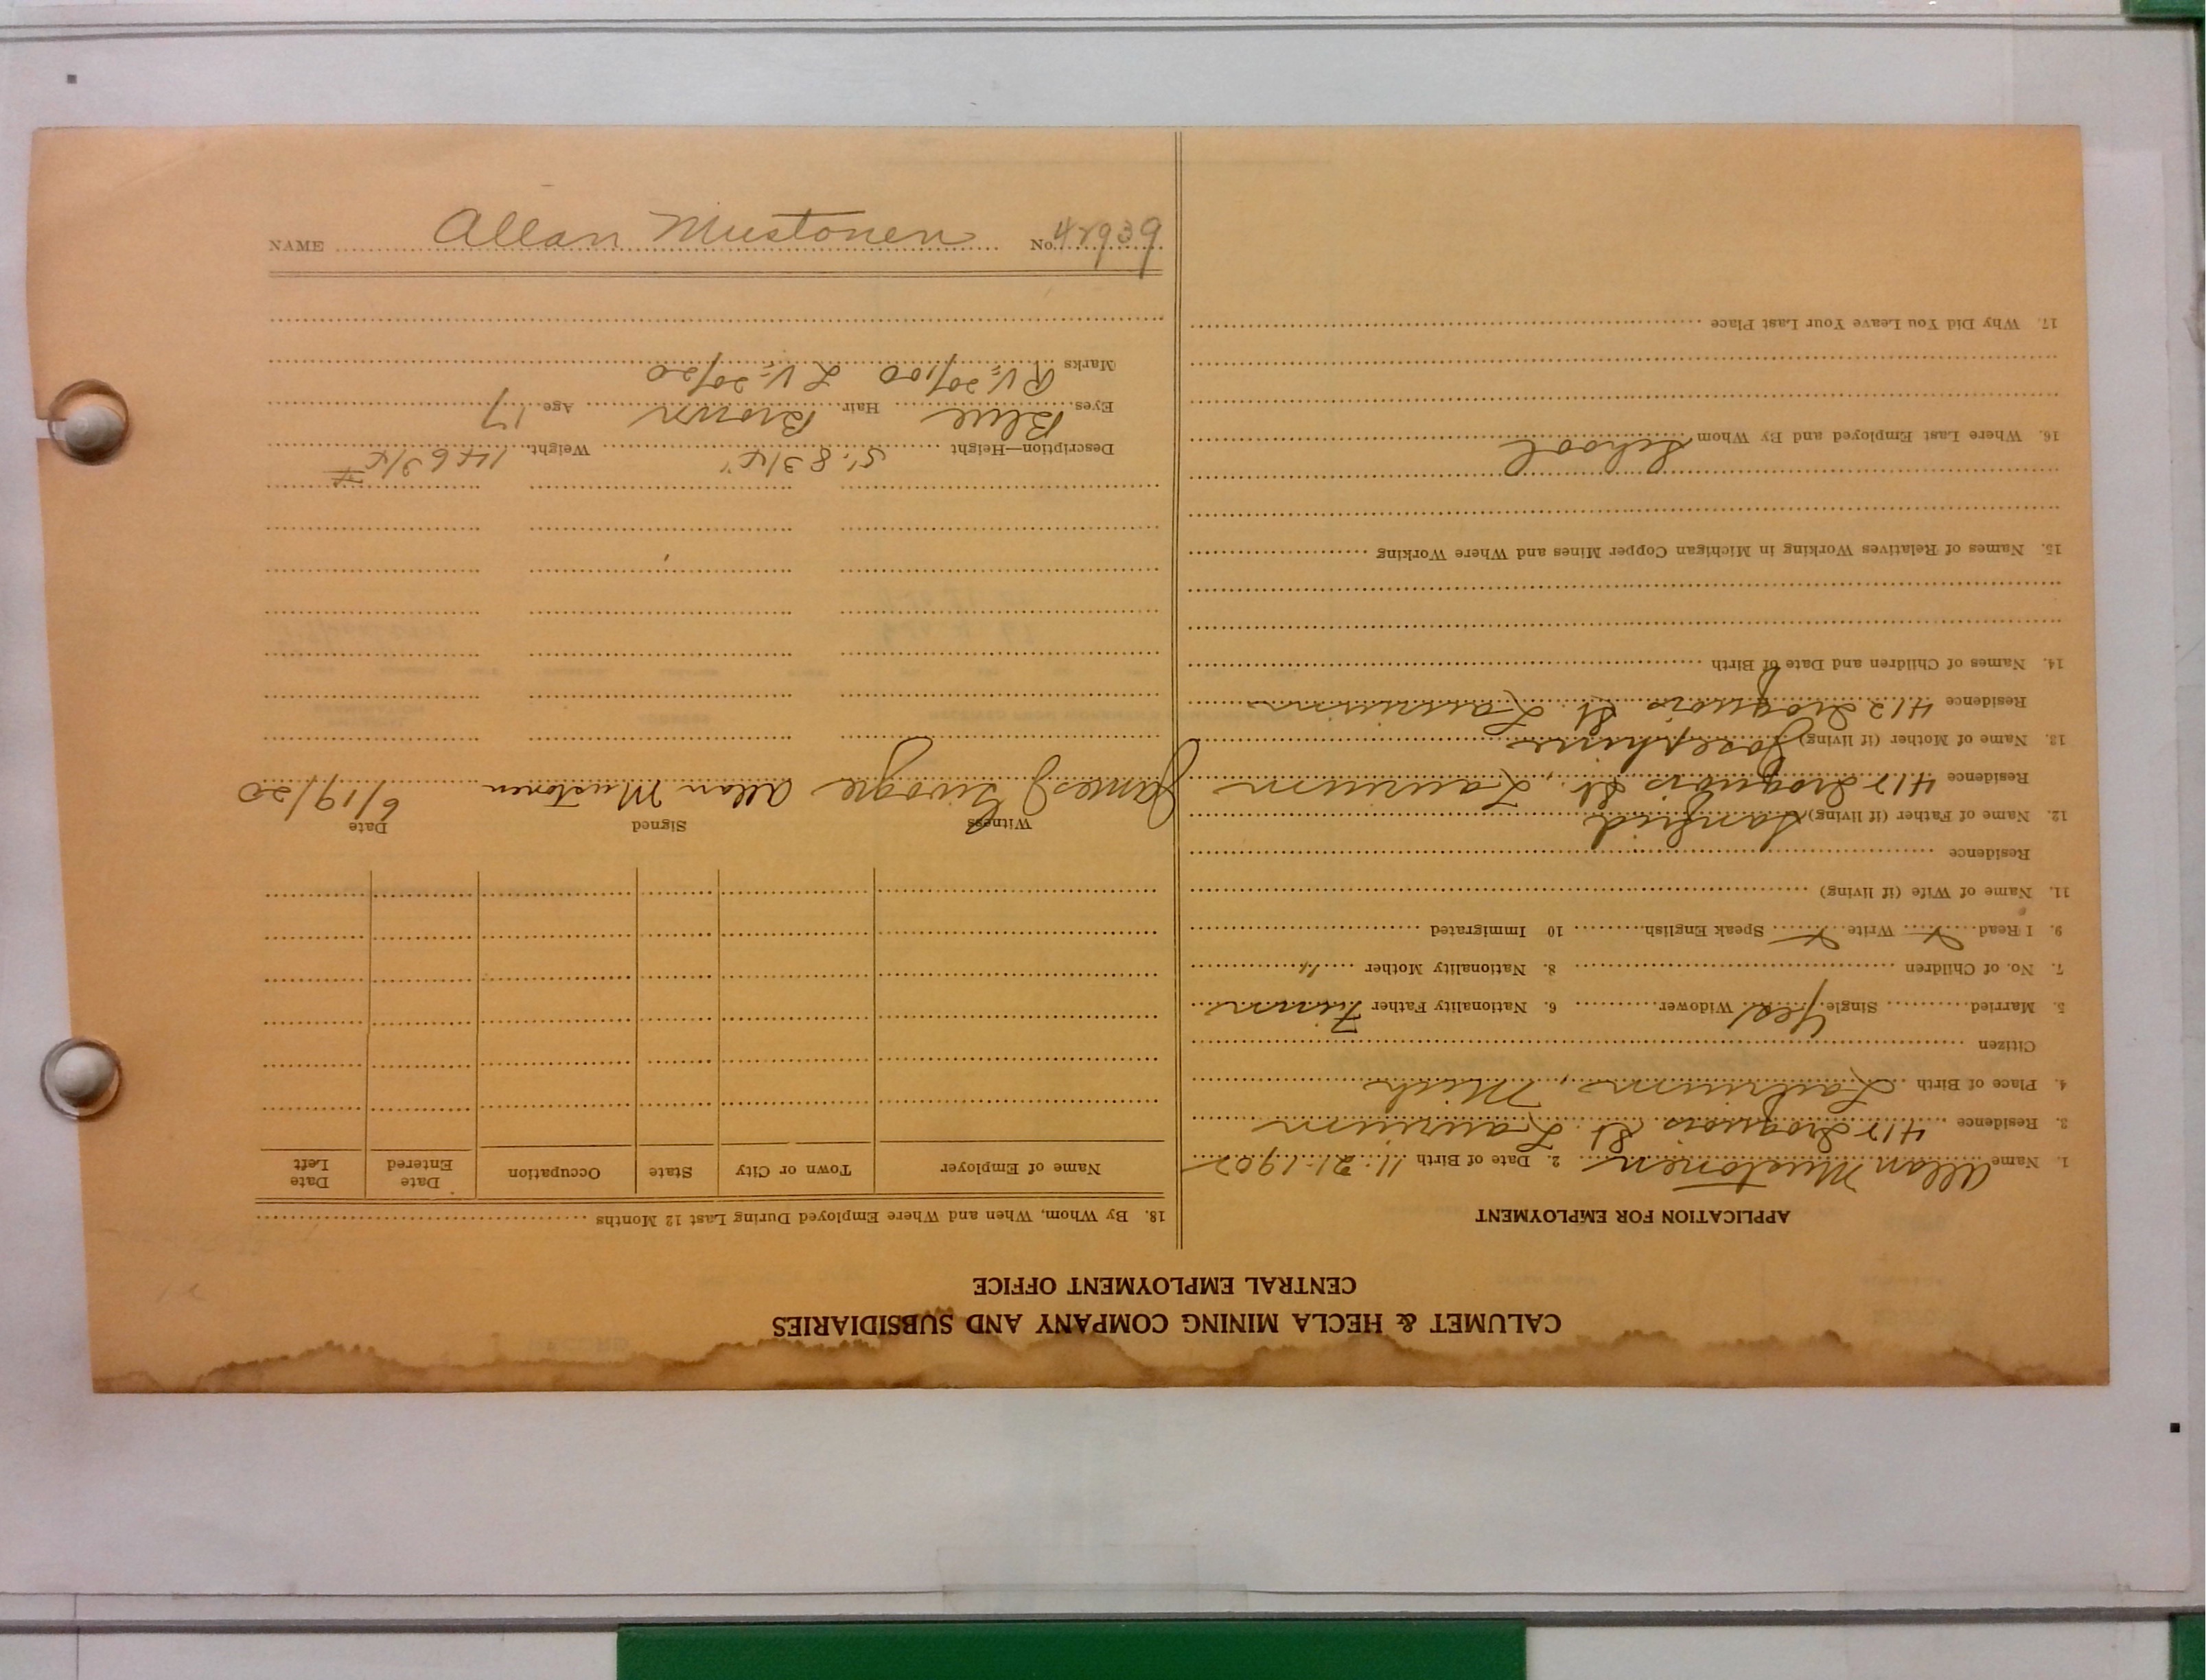 CALUMET & HECLA MINING COMPANY AND SUBSIDIARIES
CENTRAL EMPLOYMENT OFFICE
APPLICATION FOR EMPLOYMENT
1. Name Allan Mustonen 2. Date of Birth 11-21-1902
3. Residence 412 Iroquois St. Laurium
4. Place of Birth Laurium, Mich
Citizen
5. Married Single Yes Widower 6. Nationality Father Finn
7. No. of Children 8. Nationality Mother "
9. I Read X Write X Speak English 10 Immigrated
11. Name of Wife (if living)
Residence
12. Name of Father (if living) Sanfrid
Residence 412 Iroquois St., Laurium
13. Name of Mother (if living) Josephine
Residence 412 Iroquois St. Laurium
14. Names of Children and Date of Birth
15. Names of Relatives Working in Michigan Copper Mines and Where Working
16. Where Last Employed and By Whom School
17. Why Did You Leave Your Last Place
18. By Whom, When and Where Employed During Last 12 Months
Name of Employer Town or City State Occupation Date Entered Date Left
Witness Signed Date
James J Allan Mustonen 6/19/20
Description—Height 5' 8 3/4" Weight 146 3/4 #
Eyes Blue Hair Brown Age 17
Marks R V= 20/100 L V= 20/20
NAME Allan Mustonen No. 42939